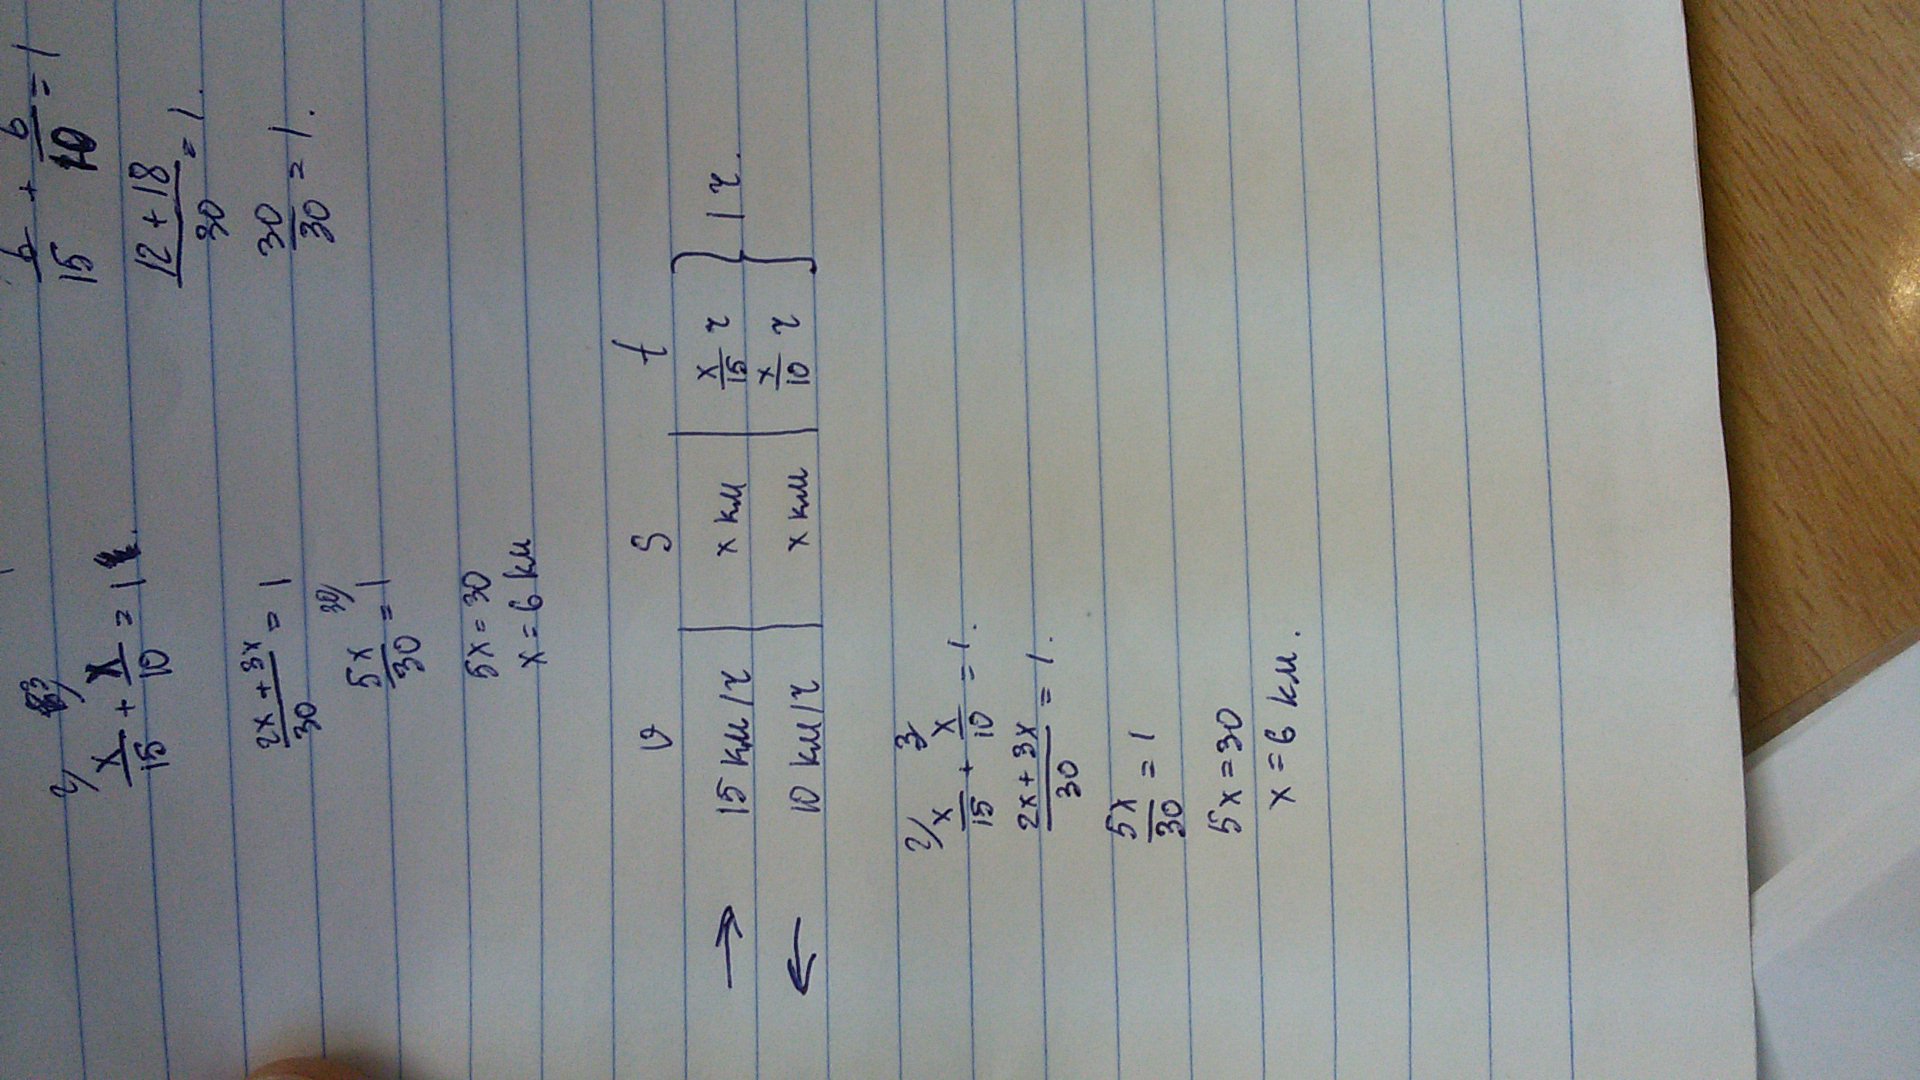 x/15 + x/10 = 1
(2x + 3x)/30 = 1
5x/30 = 1
5x = 30
x = 6 км
6/15 + 6/10 = 1
(12 + 18)/30 = 1.
30/30 = 1.
v S t
→ 15 км/ч x км x/15 ч } 1 ч.
← 10 км/ч x км x/10 ч
x/15 + x/10 = 1.
(2x + 3x)/30 = 1.
5x/30 = 1
5x = 30
x = 6 км.